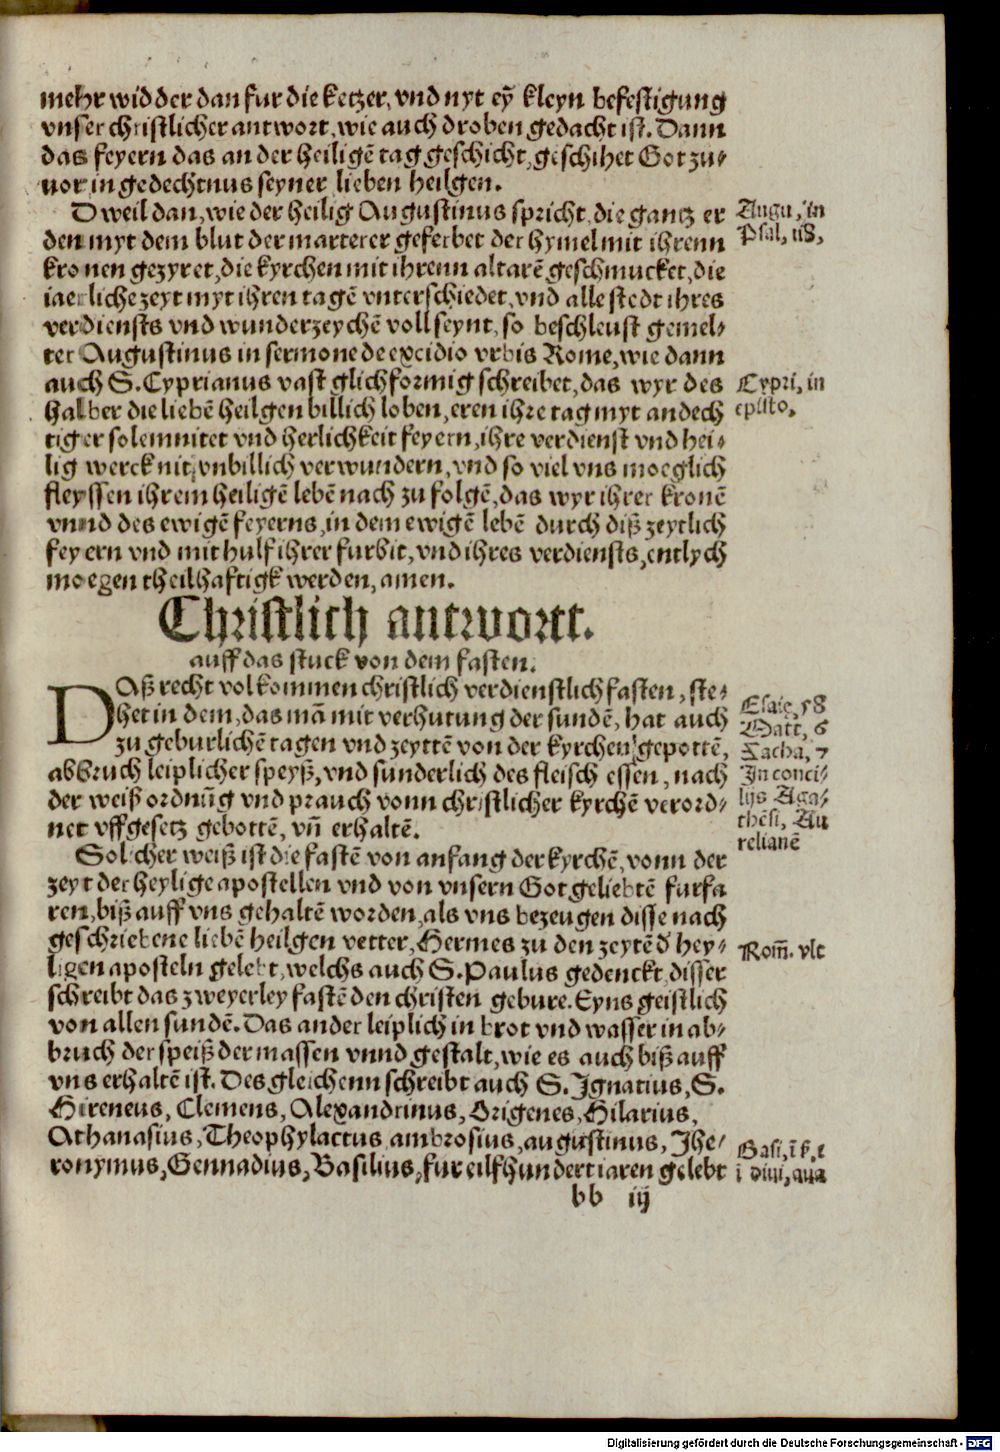 mehr widder dan fur die ketzer, vnd nyt eỹ kleyn befestigung
vnser christlicher antwort, wie auch droben gedacht ist. Dann
das feyern das an der heiligē tag geschicht, geschihet Got zu-
uor, in gedechtnus seyner lieben heilgen.
D weil dan, wie der heilig Augustinus spricht, die gantz er
den myt dem blut der marterer geferbet der hymel mit ihrenn
kronen gezyret, die kyrchen mit ihrenn altarē geschmucket, die
iaerliche zeyt myt ihren tagē vnterschiedet, vnd alle stedt ihres
verdiensts vnd wunderzeychē voll seynt, so beschleust gemel-
ter Augustinus in sermone de excidio vrbis Rome, wie dann
auch S. Cyprianus vast glichformig schreibet, das wyr des
halber die liebē heilgen billich loben, eren ihre tag myt andech
tiger solemnitet vnd herlichkeit feyern, ihre verdienst vnd hei-
lig werck nit vnbillich verwundern, vnd so viel vns moeglich
fleyssen ihrem heiligē lebē nach zu folgē, das wyr ihrer kronē
vnnd des ewigē feyerns, in dem ewigē lebē durch diß zeytlich
feyern vnd mit hulf ihrer furbit, vnd ihres verdiensts, entlych
moegen theilhaftigk werden, amen.
Augu, in
Psal, 118,
Cypri, in
episto,
Christlich antwortt.
auff das stuck von dem fasten.
Daß recht volkommen christlich verdienstlich fasten, ste-
het in dem, das mā mit verhutung der sundē, hat auch
zu geburlichē tagen vnd zeyttē von der kyrchen gepottē,
abbruch leiplicher speyß, vnd sunderlich des fleisch essen, nach
der weiß ordnūg vnd prauch vonn christlicher kyrchē verord-
net vffgesetz gebottē, vn̄ erhaltē.
Solcher weiß ist die fastē von anfang der kyrchē, vonn der
zeyt der heylige apostellen vnd von vnsern Got geliebtē furfa
ren, biß auff vns gehaltē worden, als vns bezeugen disse nach
geschriebene liebē heilgen vetter, Hermes zu den zeytē d' hey-
ligen aposteln gelebt, welchs auch S. Paulus gedenckt, disser
schreibt das zweyerley fastē den christen gebure. Eyns geistlich
von allen sundē. Das ander leiplich in brot vnd wasser in ab-
bruch der speiß dermassen vnnd gestalt, wie es auch biß auff
vns erhaltē ist. Des gleichenn schreibt auch S. Ignatius, S.
Hireneus, Clemens, Alexandrinus, Origenes, Hilarius,
Athanasius, Theophylactus ambrosius, augustinus, Jhe-
ronymus, Gennadius, Basilius, fur eilfhundert iaren gelebt
Esaie, 58
Matt, 6
Zacha, 7
In conci-
lijs Aga-
thēsi, Au
relianē
Rom̄. vlt
Basi, ī
bb iij
Digitalisierung gefördert durch die Deutsche Forschungsgemeinschaft - DFG